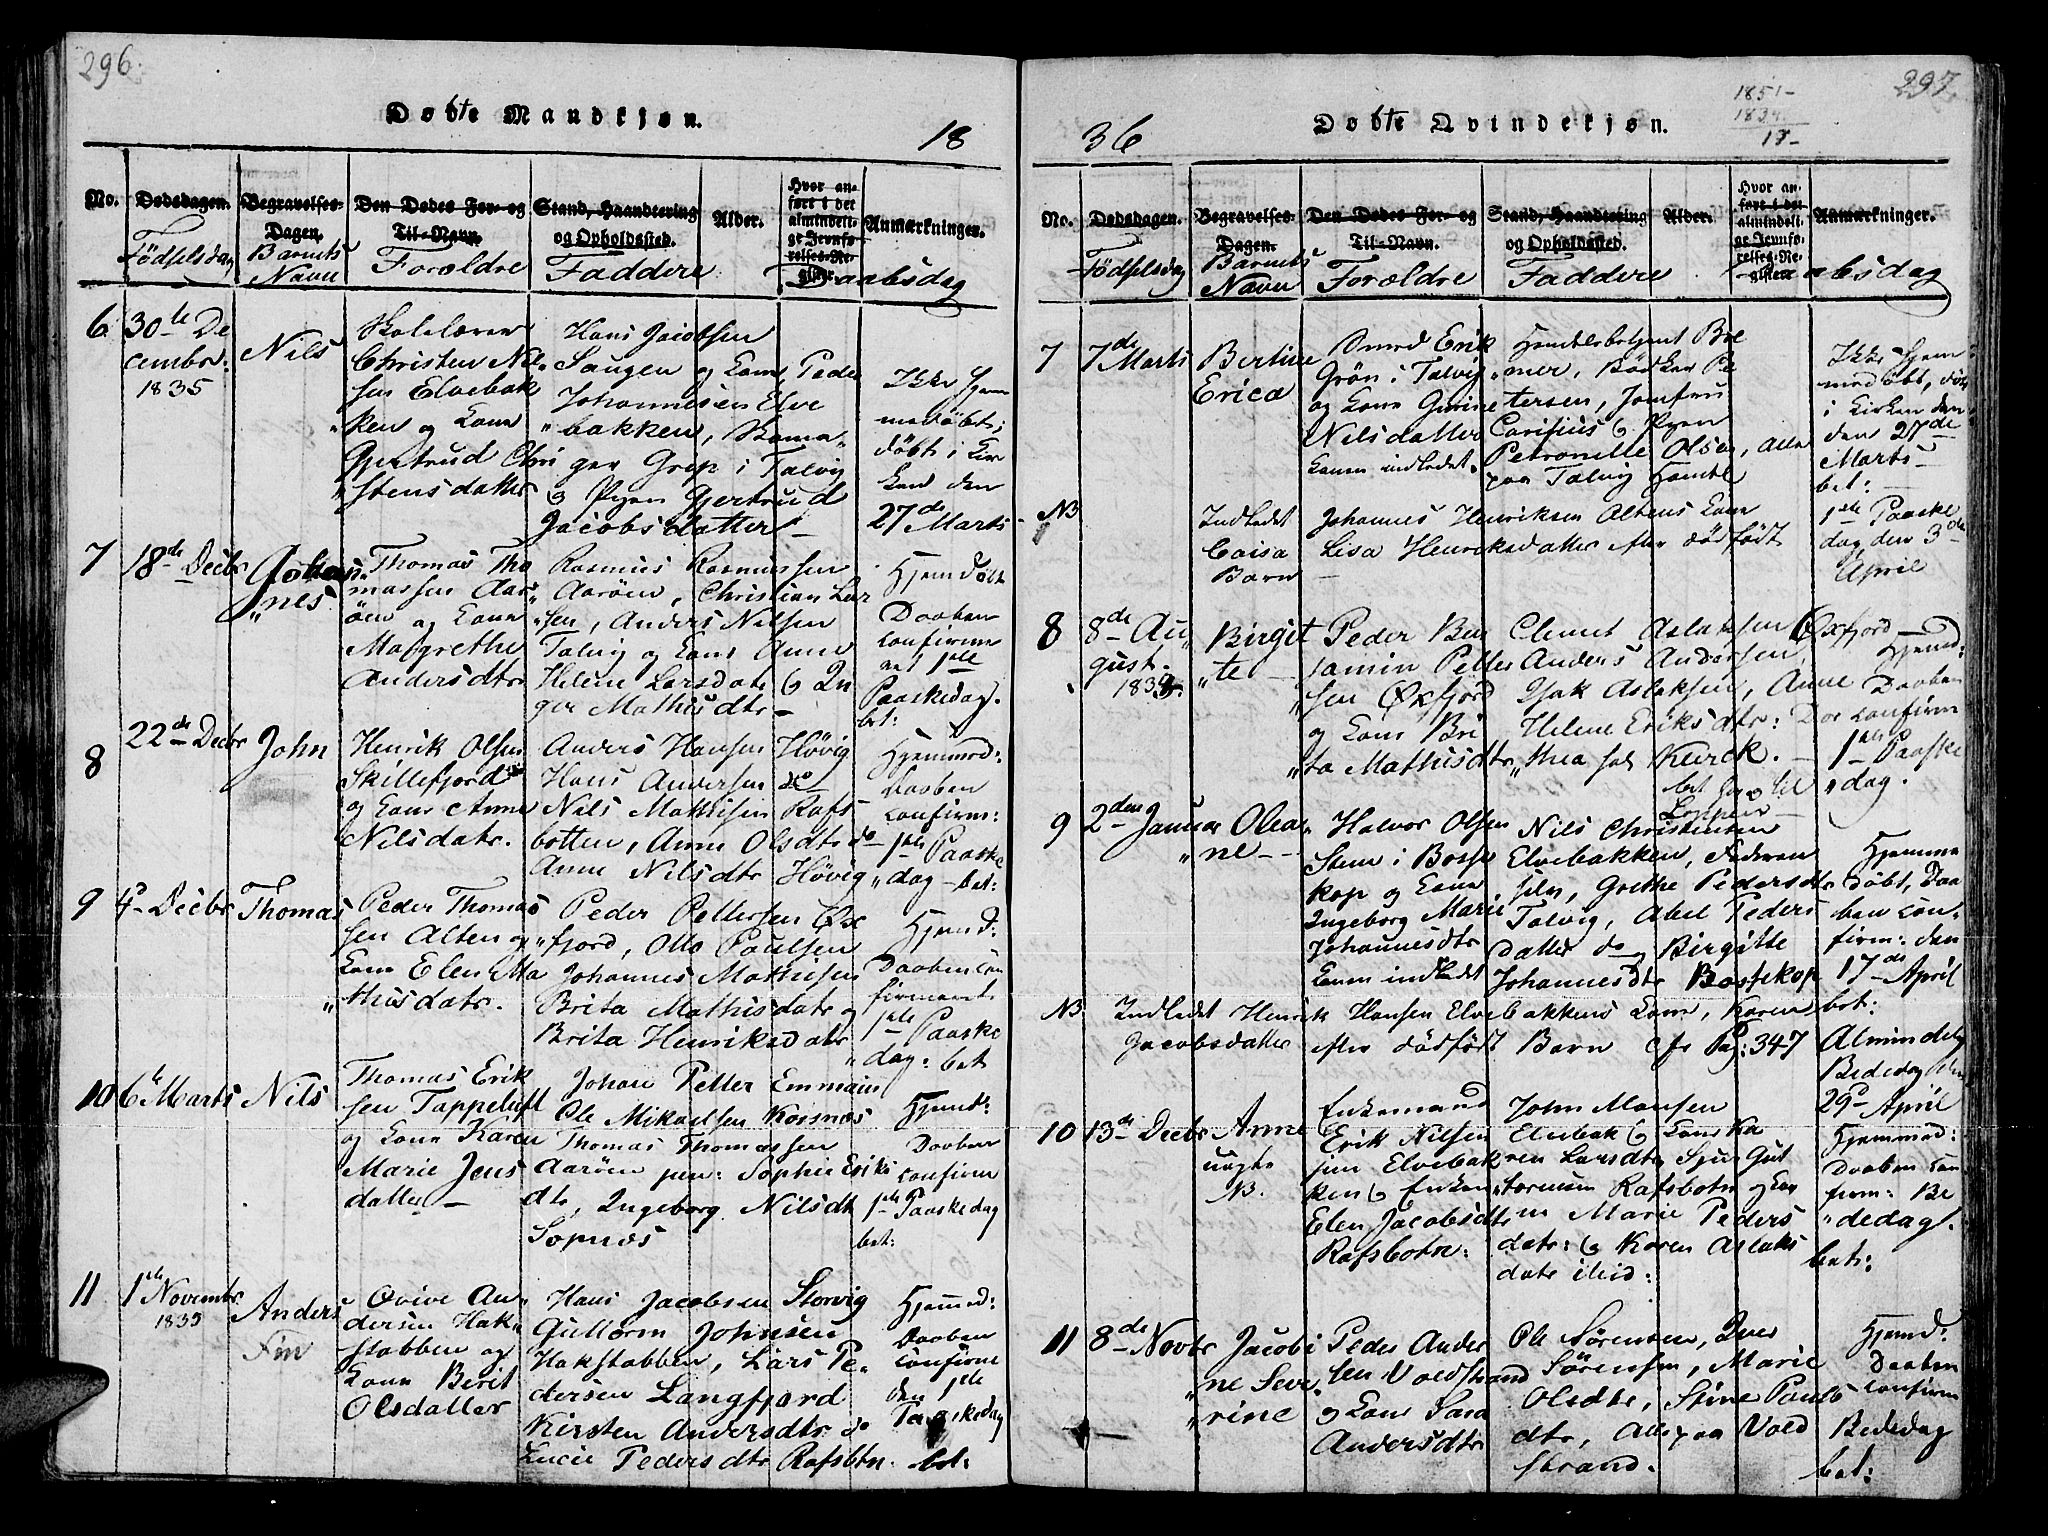 296.
Døbte Mandkjøn.
18
No.
Dødsdagen.
Födselsdag
Begravelses-
Dagen.
Barnets
Navn
Den Dødes For- og
Til-Navn.
Forældre
Stand, Haandtering
og Opholdssted.
Faddere
Alder.
Hvor an-
ført i det
almindeli-
ge Jevnfø-
relses-Re-
gister.
Anmærkninger.
Daabsdag
6
30te De
cembr.
1835
Nils
Skolelærer
Christen Nil-
sen Elvebak
ken og Kone
Gjertrud Chri
stensdatter
Hans Jacobsen
Saugen og Kone, Peder
Johannesen Elve
bakken, Skoma
ger Grop i Talvig
og Pigen Gjertrud
Jacobsdatter
Ikke hjem
medöbt,
döbt i Kir
ken den
27de Marts
7
18de Decbr
Johan
nes
Thomas Tho
massen Aar
öen og Kone
Margrethe
Andersdtr
Rasmus Rasmussen
Aaröen, Christian Lar
sen, Anders Nilsen
Talvig og Kone Anne
Helene Larsdatr & In
ger Mathisdtr
Hjemdöbt
Daaben
confirme
ret 1ste
Paaskedag.
bet:
8
22de Decbr
John
Henrik Olsen
Skillefjord
og Kone Anne
Nilsdatr.
Anders Hansen Høvig
Hans Andersen do
Nils Mathisen Rafs
botten, Anne Olsdtr do
Anne Nilsdtr Høvig
Hjemmed:
Daaben
confirm:
1ste Paaske
dag - bet:
9
4de Decbr
Thomas
Peder Thomas
sen Alten og
Kone Elen Ma
thisdatr.
Peder Pettersen Öx
fjord, Otto Paulsen
Johannes Mathisen
Brita Mathisdatr og
Brita Henriksdatr
Hjemd:
Daaben con
firmeret
1ste Paaske
dag: bet
10
6te Marts
Nils
Thomas Erik
sen Tappeluft
og Kone Karen
Marie Jens
datter
Johan Petter Emmain
Ole Mikaelsen Korsnæs
Thomas Thomassen
Aaröen sen: Sophie Eriks
dtr, Ingeborg Nilsdtr
Sopnæs
Hjemd:
Daaben
confirm
1ste Paaskedag
bet:
11
1ste Novembr
1835
Anders
Fin
Qvive An
dersen Hak
stabben og
Kone Berit
Olsdatter
Hans Jacobsen Storvig
Guttorm Johnsen
Hakstabben, Lars Pe-
dersen Langfjord
Kirsten Andersdtr do
Lucie Pedersdtr Rafsbtn
Hjemmed:
Daaben
confirme
den 1ste
Paaskedag
bet:
297.
1851-
1834
17-
Døbte Qvindekjøn.
36
No.
Dødsdagen.
Födselsdag
Begravelses-
Dagen.
Barnets
Navn
Den Dødes For- og
Til-Navn.
Forældre
Stand, Haandtering
og Opholdssted.
Faddere
Alder.
Hvor an-
ført i det
almindeli-
ge Jevnfø-
relses-Re-
gister.
Anmærkninger.
Daabsdag
7
7de Marts
Bertine
Erica
Smed Erik
Grön i Talvig
og Kone Gurine
Nilsdatter
Konen indledet.
Handelsbetjent Bre
mer, Bödker Pe
tersen, Jomfru
Carisius & Pigen
Petronille Olsen, alle
paa Talvig Handel
Ikke hjem
medöbt, döbt
i Kirken den
den 27de
Marts
bet:
NB
Indledet Johannes Henriksen Altens Kone
Caisa Lisa Henriksdatter efter dödfödt
Barn
1ste Paaske
dag den 3de
April
8
8de Au
gust.
Birgit
te
Peder Ben
jamin Petter
sen Öxfjord
og Kone Bri
ta Mathisdtr
Clemet Aslaksen Öxfjord
Anders Andersen,
Isak Aslaksen, Anne
Helene Eriksdtr: Dor
thea sal Kurck.
bet
Loppen
Hjemd:
Daaben
confirm
1ste Paaske
dag.
9
2den Januar
Olea
ne
Halvor Olsen
Stene i Bosse
kop og Kone
Ingeborg Marie
Johannesdtr
Konen indledet
Nils Christensen
Elvebakken, Faderen
selv, Grethe Pedersdtr
Talvig, Abel Peders
datter do og Birgitte
Johannesdtr Bossekop
Hjemme
döbt, Daa
ben con-
firm: den
17de April
bet:
NB
Indledet Henrik Hansen Elvebakkens Kone, Karen
Jacobsdatter efter dödfödt Barn cfr Pag: 347
Almindelig
Bededag den
29de April
10
13de Decbr
Anne
uægte
NB.
Enkemand
Erik Nilsen
sen Elvebak
ken & Enken
Elen Jacobsdtr
Rafsbotn:
John Monsen
Elvebak & Kone Ka
ren Larsdtr, Sjur Gut
tormsen Rafsbotn og Kon
en Marie Peders
datr: & Karen Aslaks
datr ibid:
Hjemmed:
Daaben con
firm: Be
dedag.
bet:
11
8de Novbr
Jacobi
ne Seve
rine
Peder Ander
sen Voldstrand
og Kone Sara
Andersdtr
Ole Sörensen, Iver
Sörensen, Marie
Olsdtr, Stine Pauls
dtr, Alle paa Vold
strand.
Hjemd:
Daaben
confirm
Bededag
bet: